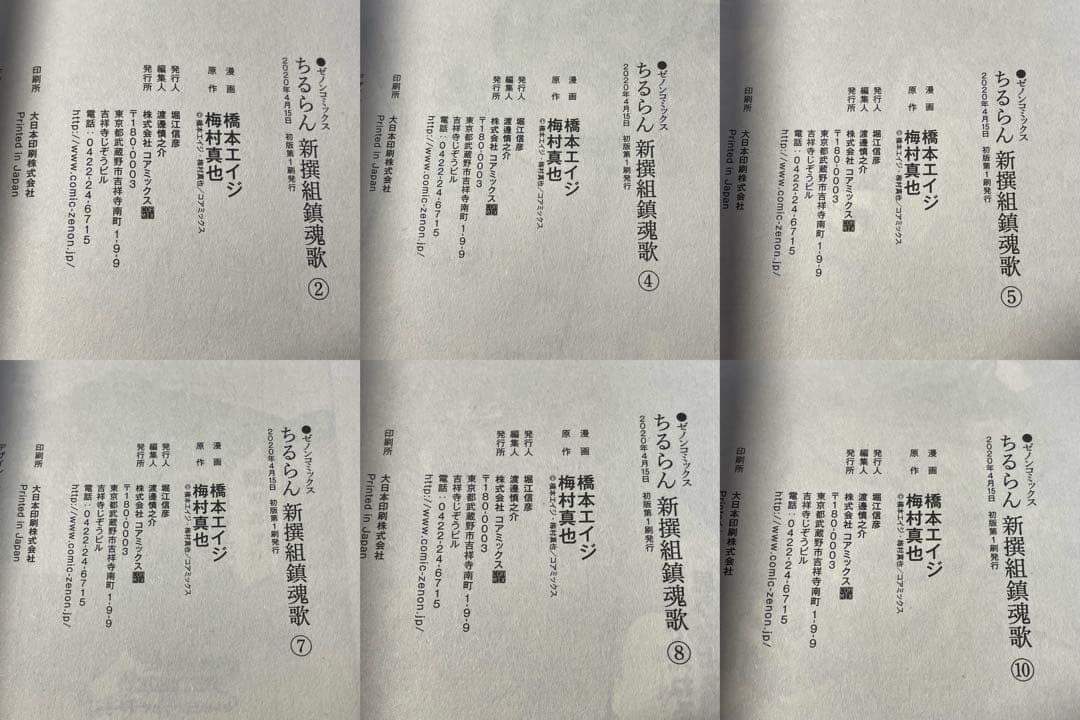 ●ゼノンコミックス
ちるらん 新撰組鎮魂歌 ②
2020年4月15日 初版第1刷発行
漫画 橋本エイジ
原作 梅村真也
©橋本エイジ・梅村真也/コアミックス
発行人 堀江信彦
編集人 渡邊慎之介
発行所 株式会社 コアミックス
〒180-0003
東京都武蔵野市吉祥寺南町 1-9-9
吉祥寺じぞうビル
電話:0422-24-6715
http://www.comic-zenon.jp/
印刷所 大日本印刷株式会社
Printed in Japan
●ゼノンコミックス
ちるらん 新撰組鎮魂歌 ④
2020年4月15日 初版第1刷発行
漫画 橋本エイジ
原作 梅村真也
©橋本エイジ・梅村真也/コアミックス
発行人 堀江信彦
編集人 渡邊慎之介
発行所 株式会社 コアミックス
〒180-0003
東京都武蔵野市吉祥寺南町 1-9-9
吉祥寺じぞうビル
電話:0422-24-6715
http://www.comic-zenon.jp/
印刷所 大日本印刷株式会社
Printed in Japan
●ゼノンコミックス
ちるらん 新撰組鎮魂歌 ⑤
2020年4月15日 初版第1刷発行
漫画 橋本エイジ
原作 梅村真也
©橋本エイジ・梅村真也/コアミックス
発行人 堀江信彦
編集人 渡邊慎之介
発行所 株式会社 コアミックス
〒180-0003
東京都武蔵野市吉祥寺南町 1-9-9
吉祥寺じぞうビル
電話:0422-24-6715
http://www.comic-zenon.jp/
印刷所 大日本印刷株式会社
Printed in Japan
●ゼノンコミックス
ちるらん 新撰組鎮魂歌 ⑦
2020年4月15日 初版第1刷発行
漫画 橋本エイジ
原作 梅村真也
©橋本エイジ・梅村真也/コアミックス
発行人 堀江信彦
編集人 渡邊慎之介
発行所 株式会社 コアミックス
〒180-0003
東京都武蔵野市吉祥寺南町 1-9-9
吉祥寺じぞうビル
電話:0422-24-6715
http://www.comic-zenon.jp/
印刷所 大日本印刷株式会社
Printed in Japan
デザイン
●ゼノンコミックス
ちるらん 新撰組鎮魂歌 ⑧
2020年4月15日 初版第1刷発行
漫画 橋本エイジ
原作 梅村真也
©橋本エイジ・梅村真也/コアミックス
発行人 堀江信彦
編集人 渡邊慎之介
発行所 株式会社 コアミックス
〒180-0003
東京都武蔵野市吉祥寺南町 1-9-9
吉祥寺じぞうビル
電話:0422-24-6715
http://www.comic-zenon.jp/
印刷所 大日本印刷株式会社
Printed in Japan
●ゼノンコミックス
ちるらん 新撰組鎮魂歌 ⑩
2020年4月15日 初版第1刷発行
漫画 橋本エイジ
原作 梅村真也
©橋本エイジ・梅村真也/コアミックス
発行人 堀江信彦
編集人 渡邊慎之介
発行所 株式会社 コアミックス
〒180-0003
東京都武蔵野市吉祥寺南町 1-9-9
吉祥寺じぞうビル
電話:0422-24-6715
http://www.comic-zenon.jp/
印刷所 大日本印刷株式会社